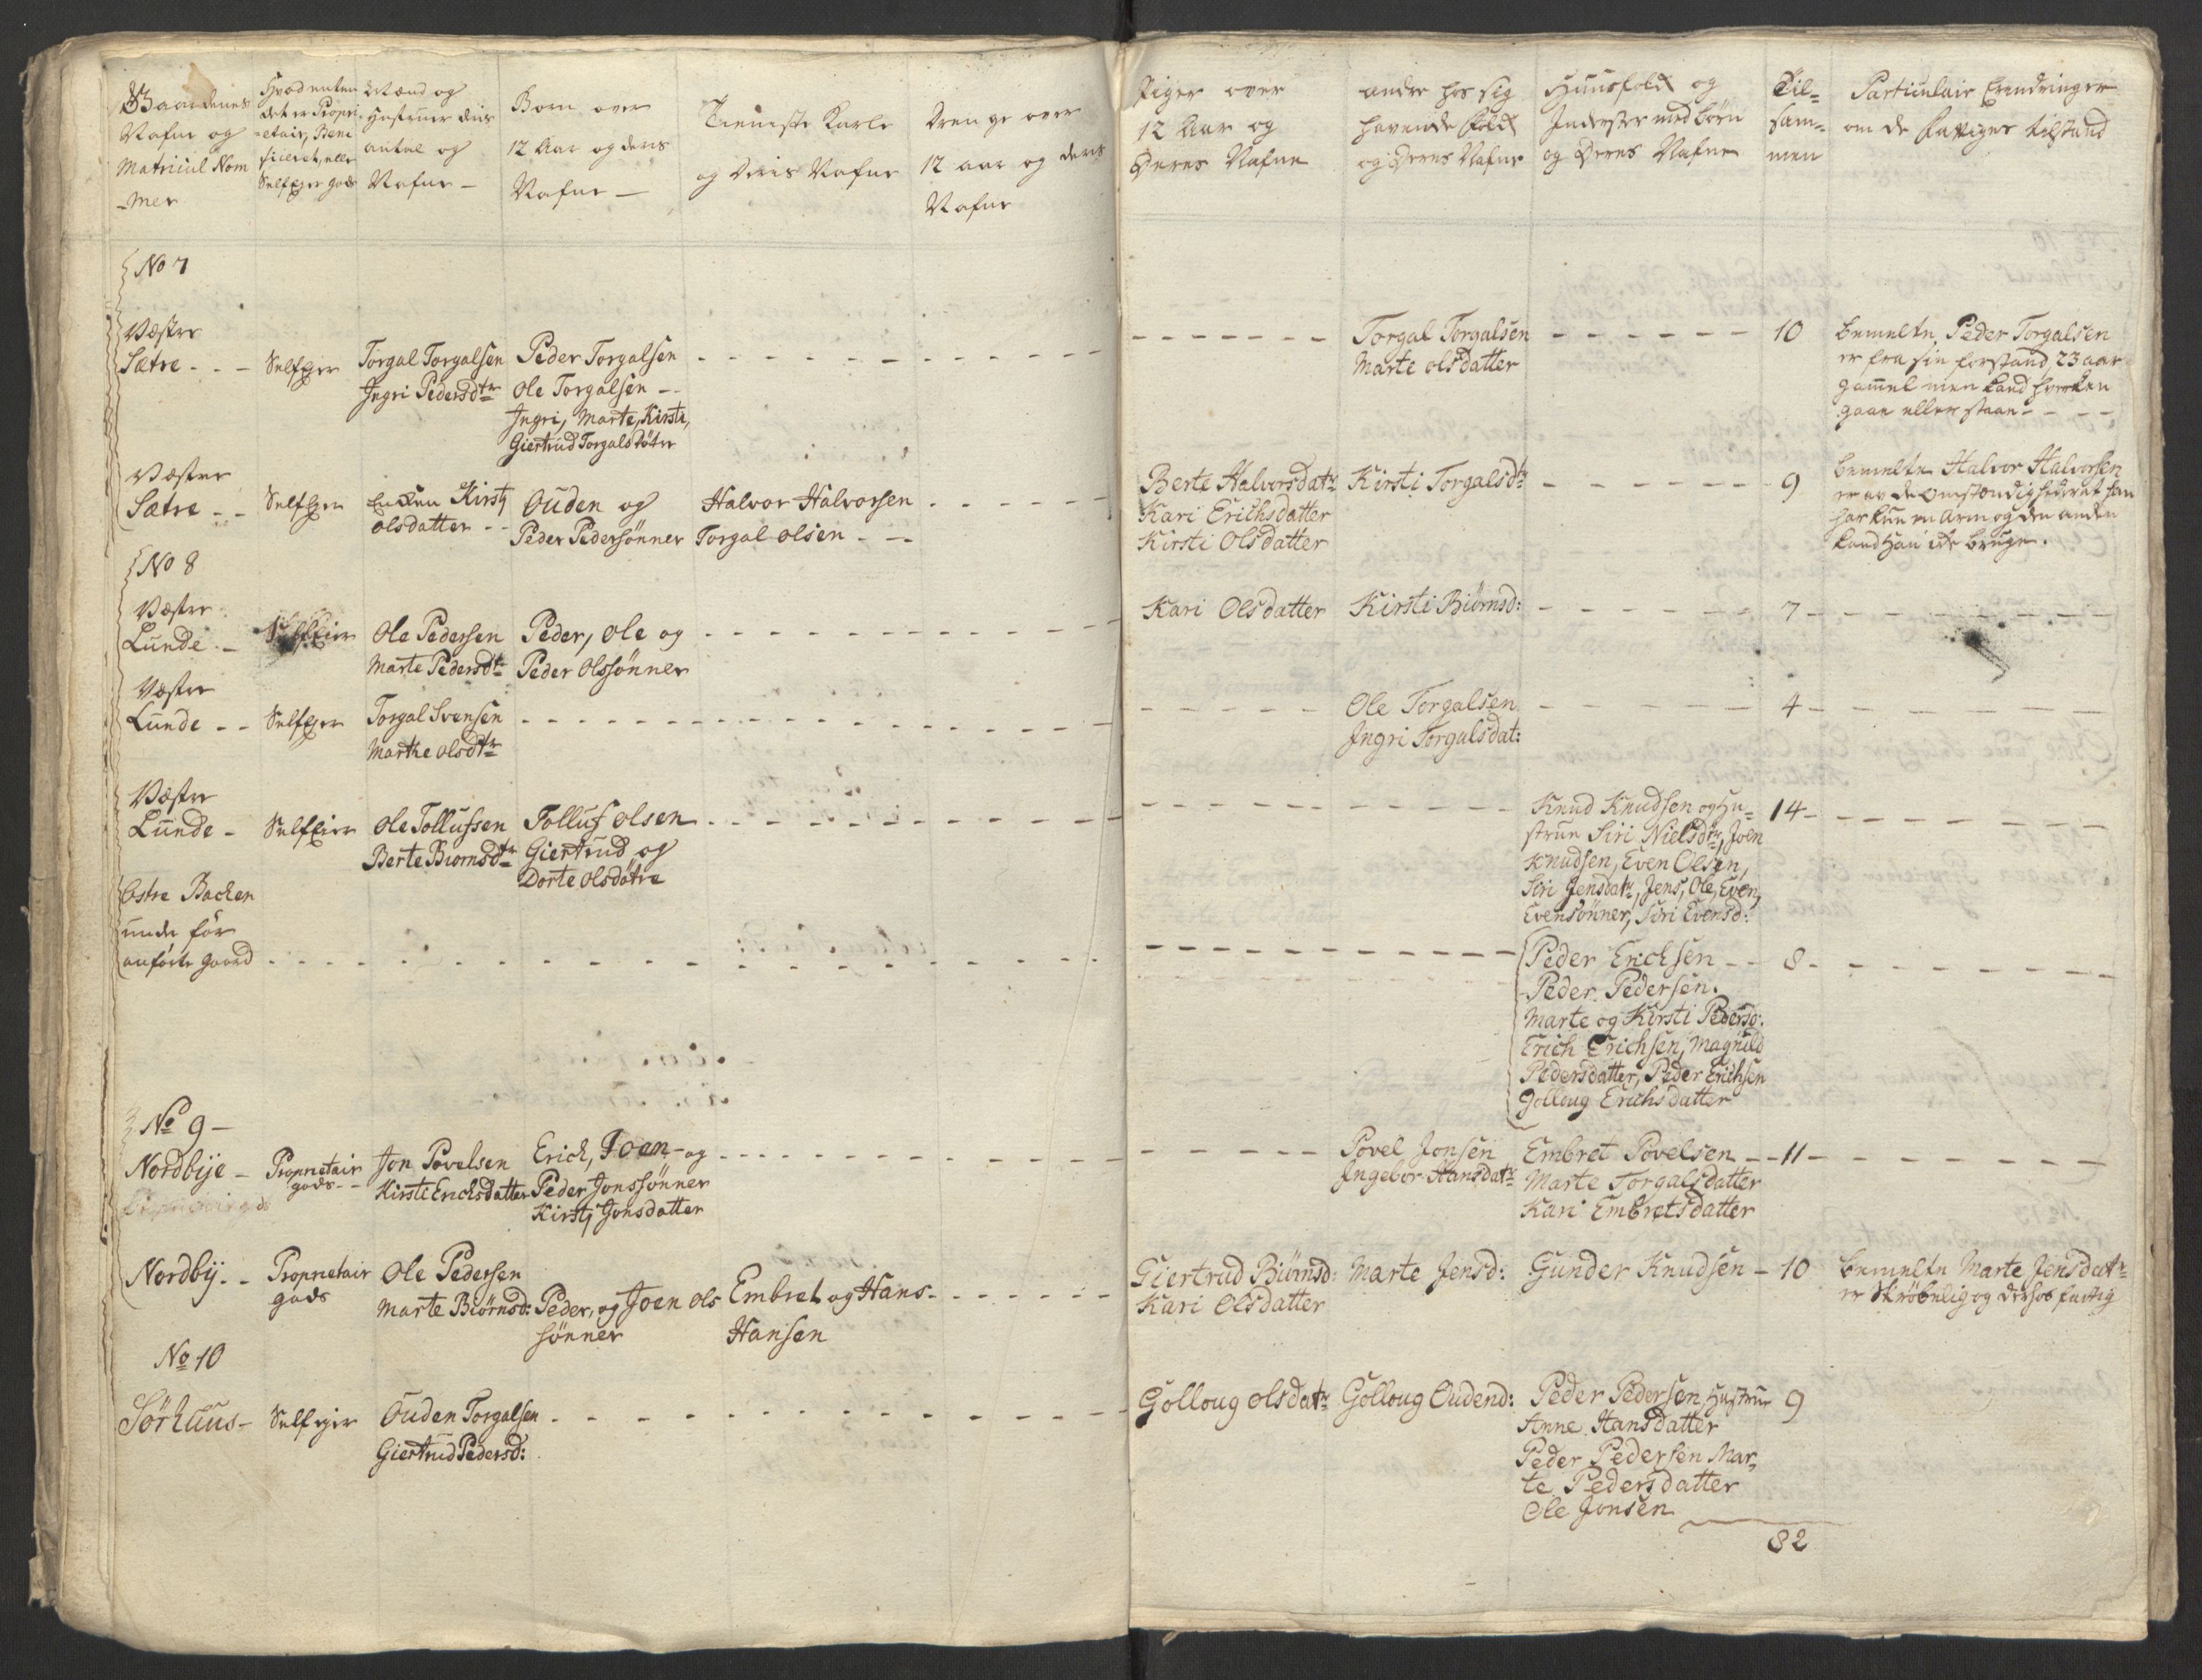 Gaardenes
Nafne og
Matricul Nom
-mer
Hvad enten
det er Propri-
-etair, Beni
ficeret, eller
Selfejer gods
Mænd og
Hustruer dris
antal og
Nafne -
Børn over
12 Aar og deris
Nafne -
Tieniste Karle
og deris Nafne
Drenge over
12 aar og deris
Nafne
Piger over
12 Aar og
Deres Nafne
andre hos sig
havende folk
og Deres Nafne
Huusfolk og
Inderster med børn
og Deres Nafne
Til-
sam-
men
Particulair Erindringer
om de fattiges tilstand
No 7
Vestre
Sætre - - -
Selfejer
Torgal Torgalsen
Ingri Pedersdtr
Peder Torgalsen
Ole Torgalsen - -
Ingri, Marte, Kirsti,
Giertrud Torgalsdøtre
Torgal Torgalsen
Marte olsdatter
10
bemelte Peder Torgalsen
er fra sin forstand, 23 aar
gammel men kand hverken
gaae eller staae - - -
Vestre
Sætre - -
Selfejer
Enken Kirstj
olsdatter - -
Ouden og
Peder Pedersønner
Halvor Halvorsen
Torgal olsen - -
Berte Halvorsdatr
Kari Erichsdatter
Kirsti Olsdatter
Kirsti Torgalsdtr
9
bemelte Halvor Halvorsen
er av de omstændigheder at han
har kun en arm og den anden
kand Han icke bruge.
No 8
Vestre
Lunde - -
Selfeier
Ole Pedersen
Marte Pedersdtr
Peder, Ole og
Peder Olssønner
Kari Olsdatter
Kirsti Biørnsd:
7
Vestre
Lunde - -
Selfejer
Torgal Svensen
Marthe olsdtr
Ole Torgalsen
Ingri Torgalsdat:
4
Vestre
Lunde -
Selfeier
Ole Tollufsen
Berte Biørnsdtr
Tolluf olsen
Giertrud og
Dorte olsdøtre
Knud Knudsen og Hu-
strue Siri Nielsdtr, Joen
Knudsen, Even Olsen,
Siri Jensdatr, Jens, Ole, Even,
Evensønner, Siri Evensd:
14
Østre Backen
under før
anførte gaard
Peder Erichsen - -
Peder Pedersen.
Marte og Kirsti Pedersd:
Erich Erichsen, Magnild
Pedersdatter, Peder Erichsen
Golloug Erichsdatter
8
No 9 -
Nordbije -
Proprietair
gods - -
Jon Povelsen
Kirsti Erichsdatter
Erich, Joen - og
Peder Jonssønner
Kirstj Jonsdatter
Povel Jonsen
Ingebor Hansdatr
Embret Povelsen - -
Marte Torgalsdatter
Kari Embretsdatter
11
Nordbij - -
Proprietair
gods
Ole Pedersen
Marte Biørnsd:
Peder, og Joen Ols
sønner
Embret og Hans
Hansen
Giertrud Biørnsd:
Kari Olsdatter
Marte Jensd:
Gunder Knudsen -
10
bemelte Marte Jensdatr
er skrøbelig og derhos fattig
No 10
Sørhuus -
Selfejer
Ouden Torgalsen
Giertrud Pedersd:
Golloug olsdatr
Golloug Oudend:
Peder Pedersen Hustrue
Anne Hansdatter
Peder Pedersen Mar-
te Pedersdatter
Ole Jonsen
9
82